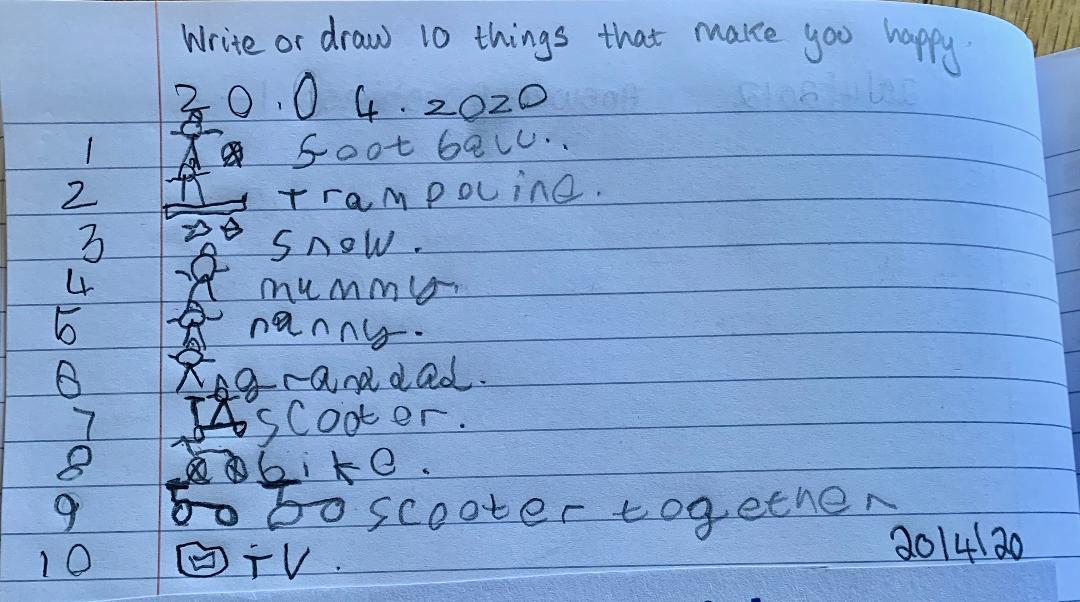 Write or draw 10 things that make you happy.
20.04.2020
1 foot ball..
2 trampoline.
3 snow.
4 mummy.
5 nanny.
6 grandad.
7 scooter.
8 bike.
9 scooter together
10 TV.
20/4/20